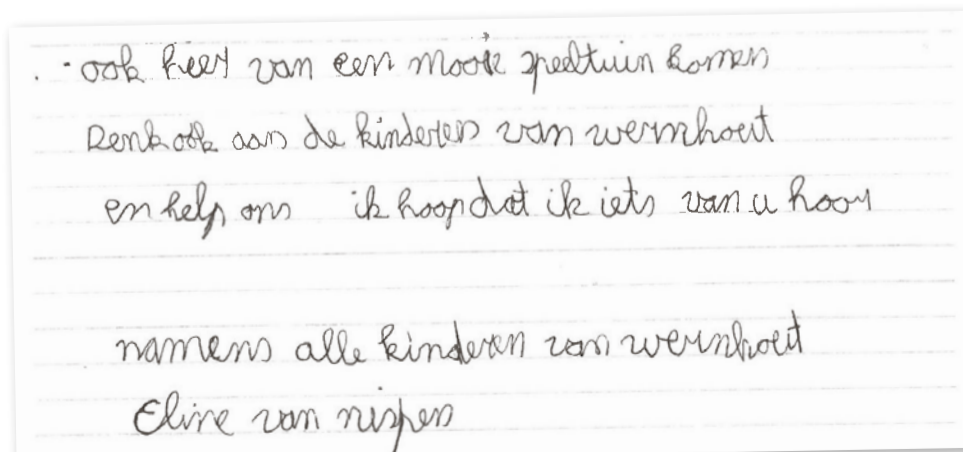 ook keer van een mooie speeltuin komen
Denk ook aan de kinderen van wernhout
en help ons ik hoop dat ik iets van u hoor
namens alle kinderen van wernhout
Eline van nispen